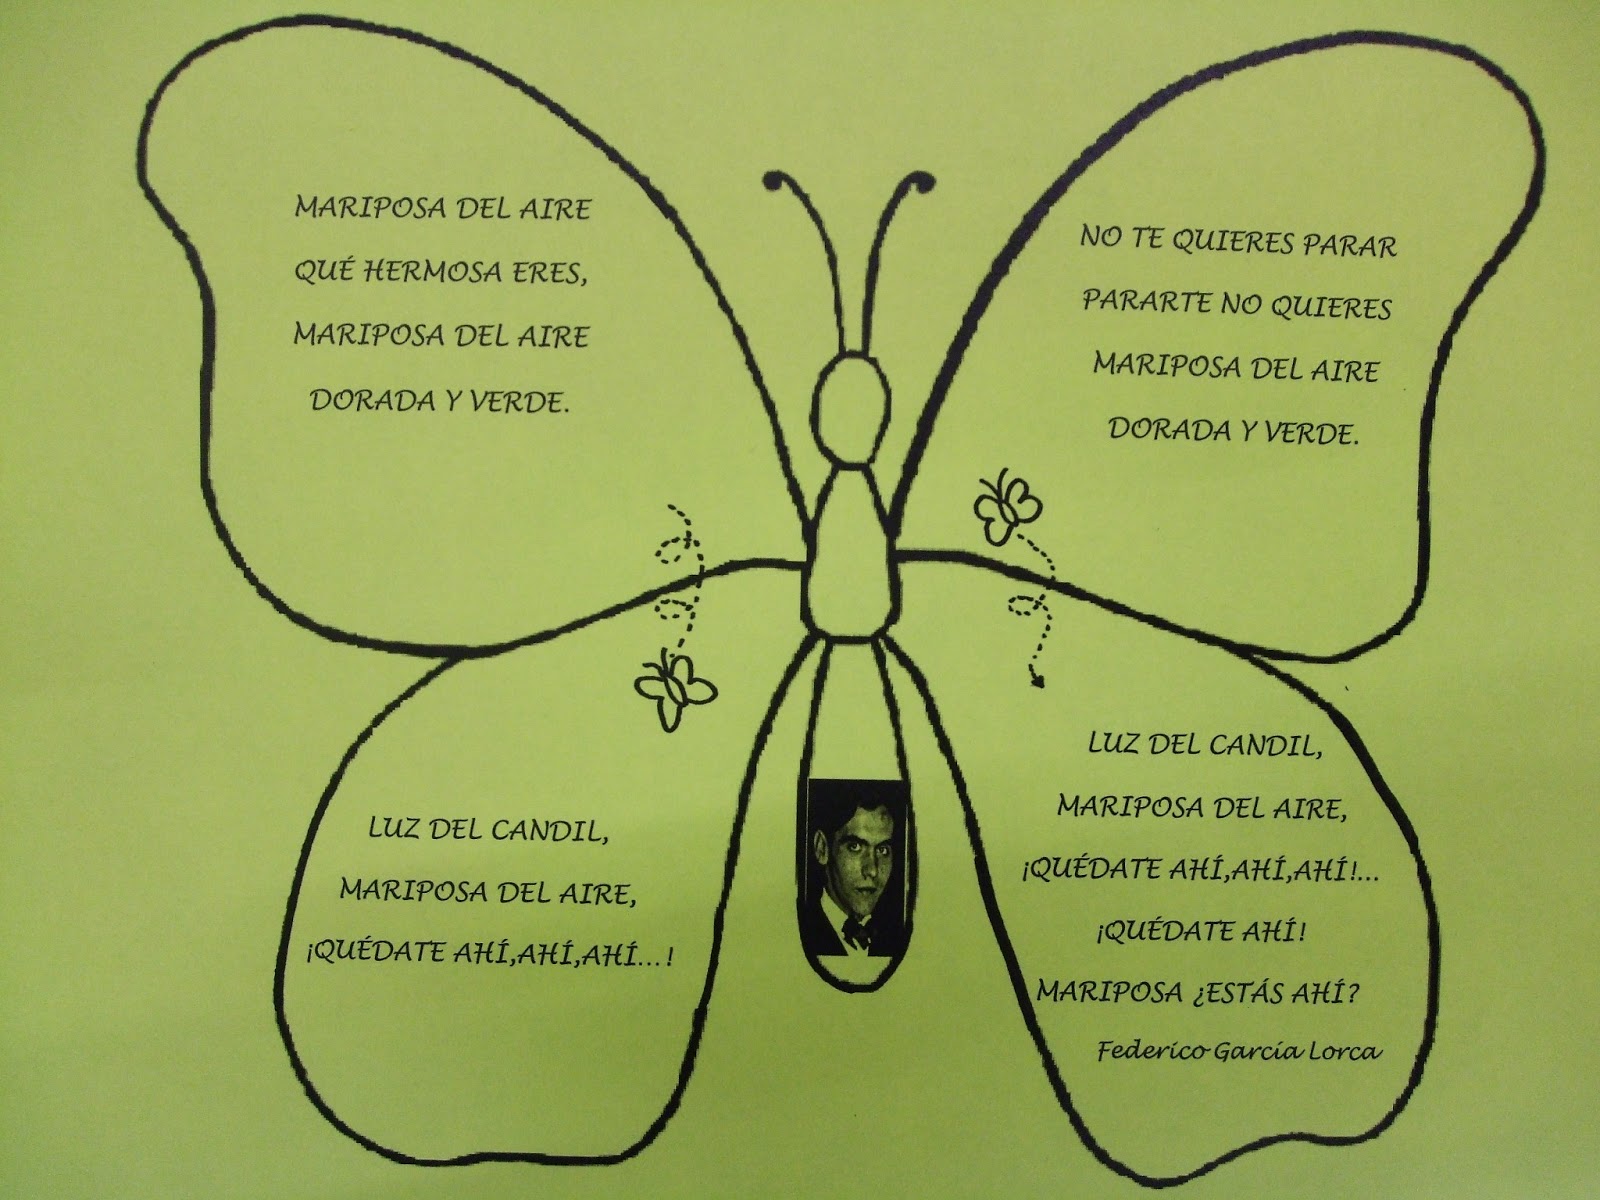 MARIPOSA DEL AIRE
QUÉ HERMOSA ERES,
MARIPOSA DEL AIRE
DORADA Y VERDE.
LUZ DEL CANDIL,
MARIPOSA DEL AIRE,
¡QUÉDATE AHÍ,AHÍ,AHÍ...!
NO TE QUIERES PARAR
PARARTE NO QUIERES
MARIPOSA DEL AIRE
DORADA Y VERDE.
LUZ DEL CANDIL,
MARIPOSA DEL AIRE,
¡QUÉDATE AHÍ,AHÍ,AHÍ!...
¡QUÉDATE AHÍ!
MARIPOSA ¿ESTÁS AHÍ?
Federico García Lorca